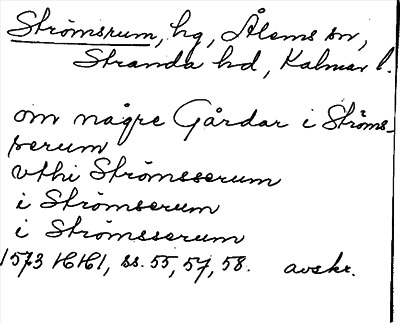 Strömsrum, hg, Ålems sn,
Stranda hd, Kalmar l.
om någre Gårdar i Ströms-
serum
vthi Strömsserum
i Strömserum
i Strömsserum
1573 HH1, ss. 55, 57, 58. avskr.